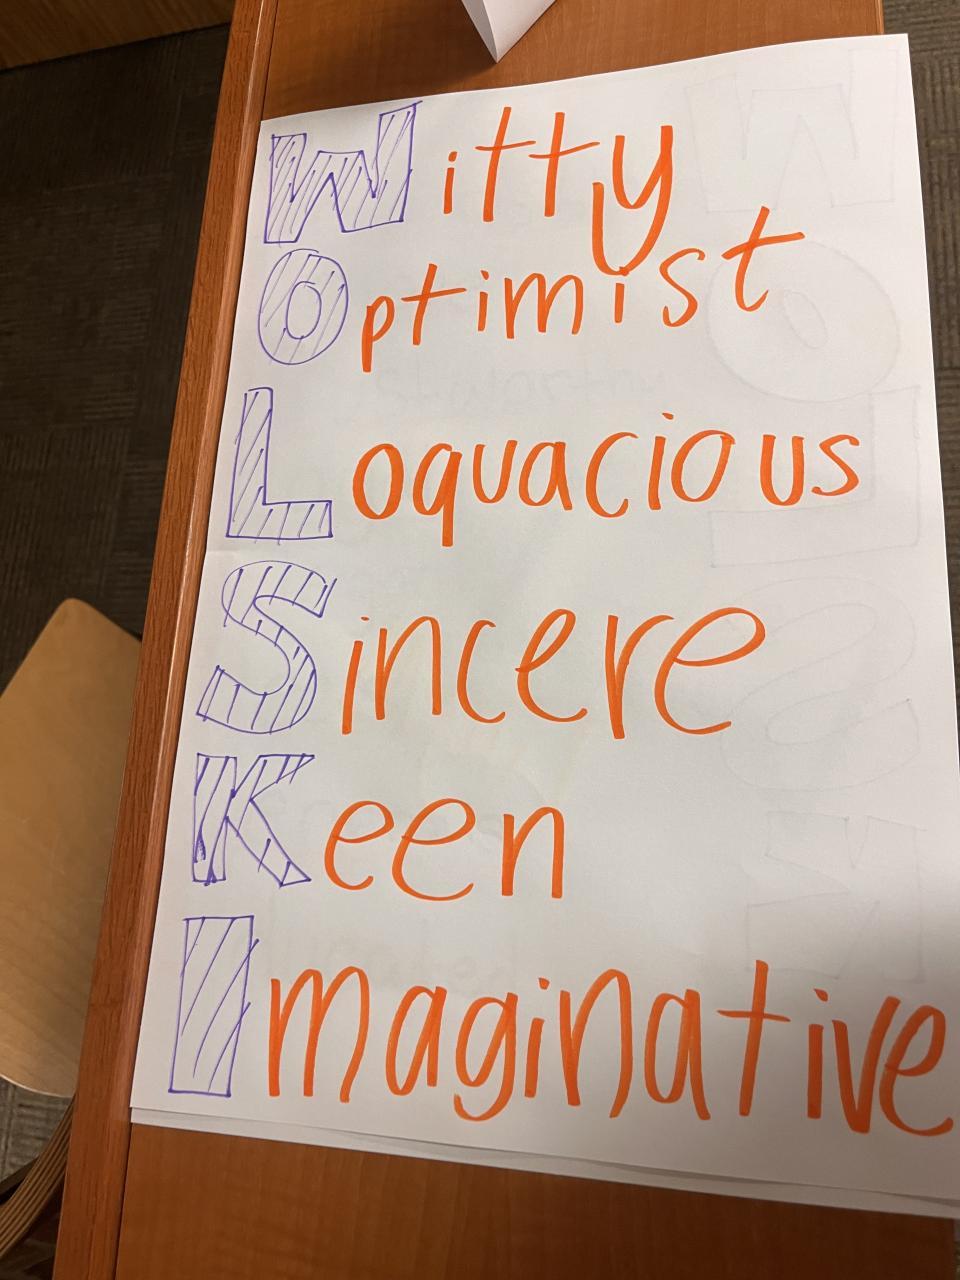 Witty
Optimist
Loquacious
Sincere
Keen
Imaginative